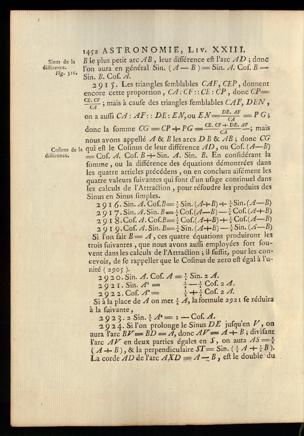 1452 ASTRONOMIE, LIV. XXIII.
Sinus de la différence.
Fig. 316.
B le plus petit arc AB, leur différence est l'arc AD ; donc
l'on aura en général Sin. (A — B) = Sin. A. Cos. B —
Sin. B. Cos. A.
2915. Les triangles semblables CAF, CEP, donnent
encore cette proportion, CA : CF :: CE : CP, donc CP =
CE. CF / CA ; mais à cause des triangles semblables CAF, DEN,
on a aussi CA : AF :: DE : EN, ou EN = DE. AF / CA = PG ;
donc la somme CG = CP + PG = CE. CF + DE. AF / CA ; mais
nous avons appellé A & B les arcs DB & AB ; donc CG
Cosinus de la différence.
qui est le Cosinus de leur différence AD, ou Cos. (A — B)
= Cos. A. Cos. B + Sin. A. Sin. B. En considérant la
somme, ou la différence des équations démontrées dans
les quatre articles précédens, on en conclura aisément les
quatre valeurs suivantes qui sont d'un usage continuel dans
les calculs de l'Attraction, pour résoudre les produits des
Sinus en Sinus simples.
2916. Sin. A. Cos. B = ½ Sin. (A + B) + ½ Sin. (A — B)
2917. Sin. A. Sin. B = ½ Cos. (A — B) — ½ Cos. (A + B)
2918. Cos. A. Cos. B = ½ Cos. (A + B) + ½ Cos. (A — B)
2919. Cos. A. Sin. B = ½ Sin. (A + B) — ½ Sin. (A — B)
Si l'on fait B = A, ces quatre équations produiront les
trois suivantes, que nous avons aussi employées fort souvent
dans les calculs de l'Attraction ; il suffit, pour les concevoir,
de se rappeller que le Cosinus de zero est égal à l'unité
(2905).
2920. Sin. A. Cos. A = ½ Sin. 2 A.
2921. Sin. A² = ½ — ½ Cos. 2 A.
2922. Cos. A² = ½ + ½ Cos. 2 A.
Si à la place de A on met ½ A, la formule 2921 se réduira
à la suivante,
2923. 2 Sin. ½ A² = 1 — Cos. A.
2924. Si l'on prolonge le Sinus DE jusqu'en V, on
aura l'arc BV = BD = A, donc AV = A + B ; divisant
l'arc AV en deux parties égales en S, on aura AS = ½
(A + B), & la perpendiculaire ST = Sin. (½ A + ½ B).
La corde AD de l'arc AXD = A — B, est le double du